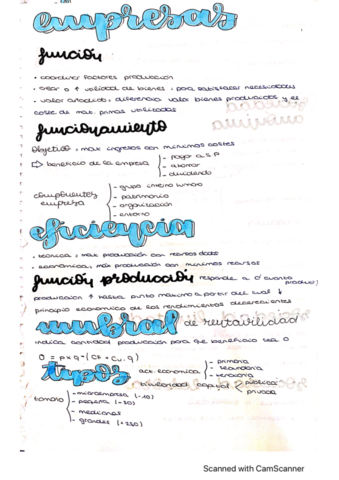 empresas
función
· coordinar factores producción
· crear o ↑ utilidad de bienes, para satisfacer necesidades
· valor añadido: diferencia valor bienes producidos y el
coste de mat. primas utilizadas
funcionamiento
Objetivo: max ingresos con mínimos costes
⇒ beneficio de la empresa
- pagar a S.P
- ahorrar
- dividendo
componentes empresa
- grupo humano
- patrimonio
- organización
- entorno
eficiencia
· técnica: máx producción con recursos dados
· económica: máx producción con mínimos recursos
función producción responde a ¿cuánto
producir?
producción ↑ hasta punto máximo a partir del cual ↓
principio económico de los rendimientos decrecientes
umbral de rentabilidad
indica cantidad producción para que beneficio sea 0
0 = p x q - (Cf + Cu · q)
tipos
act. económica
- primaria
- secundaria
- terciaria
titularidad capital
pública
privada
tamaño
- microempresa (-10)
- pequeña (-50)
- medianas
- grandes (+250)
Scanned with CamScanner